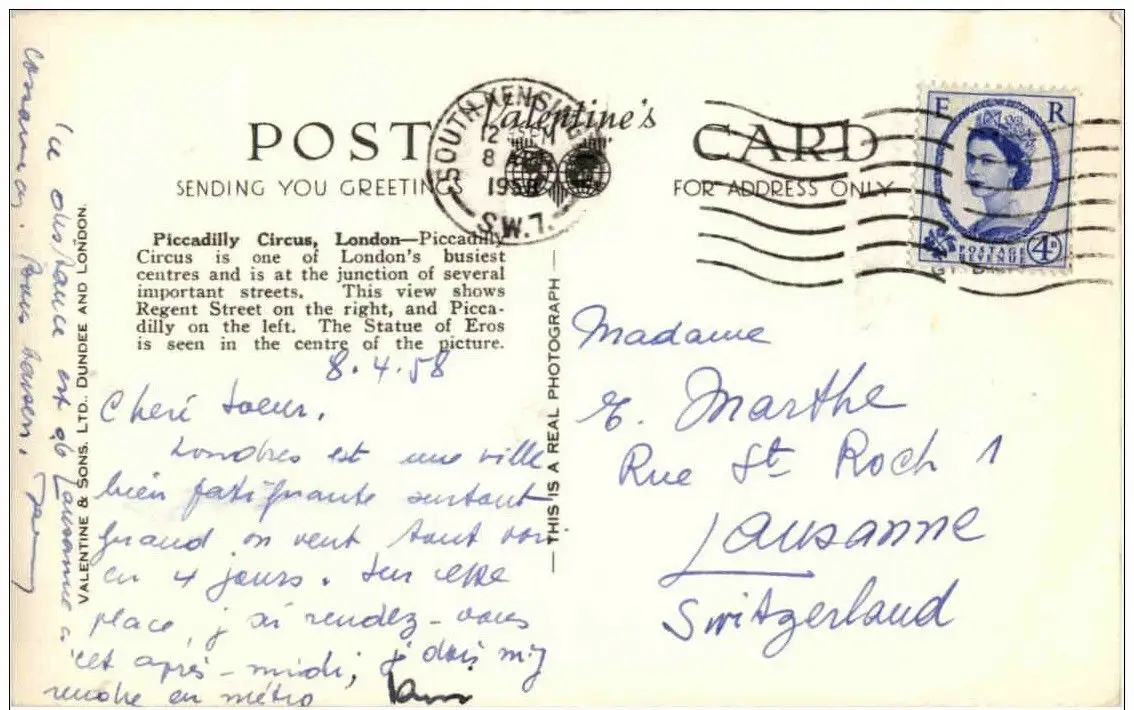 POST CARD
Valentine's
SENDING YOU GREETINGS
FOR ADDRESS ONLY
SOUTH KENSING
12
8 APR
1958
S.W.7.
E R
POSTAGE
REVENUE
4D
Piccadilly Circus, London—Piccadilly
Circus is one of London's busiest
centres and is at the junction of several
important streets. This view shows
Regent Street on the right, and Picca-
dilly on the left. The Statue of Eros
is seen in the centre of the picture.
8.4.58
Cheré soeur,
Londres est une ville
bien fatiguante surtout
quand on veut tout voir
en 4 jours. Sur cette
place, j'ai rendez-vous
cet après-midi, j'dois m'y
rendre en métro
distance est Lausanne à
Cossonay. Bons baisers.
VALENTINE & SONS, LTD., DUNDEE AND LONDON.
— THIS IS A REAL PHOTOGRAPH —
Madame
E. Marthe
Rue St Roch 1
Lausanne
Switzerland